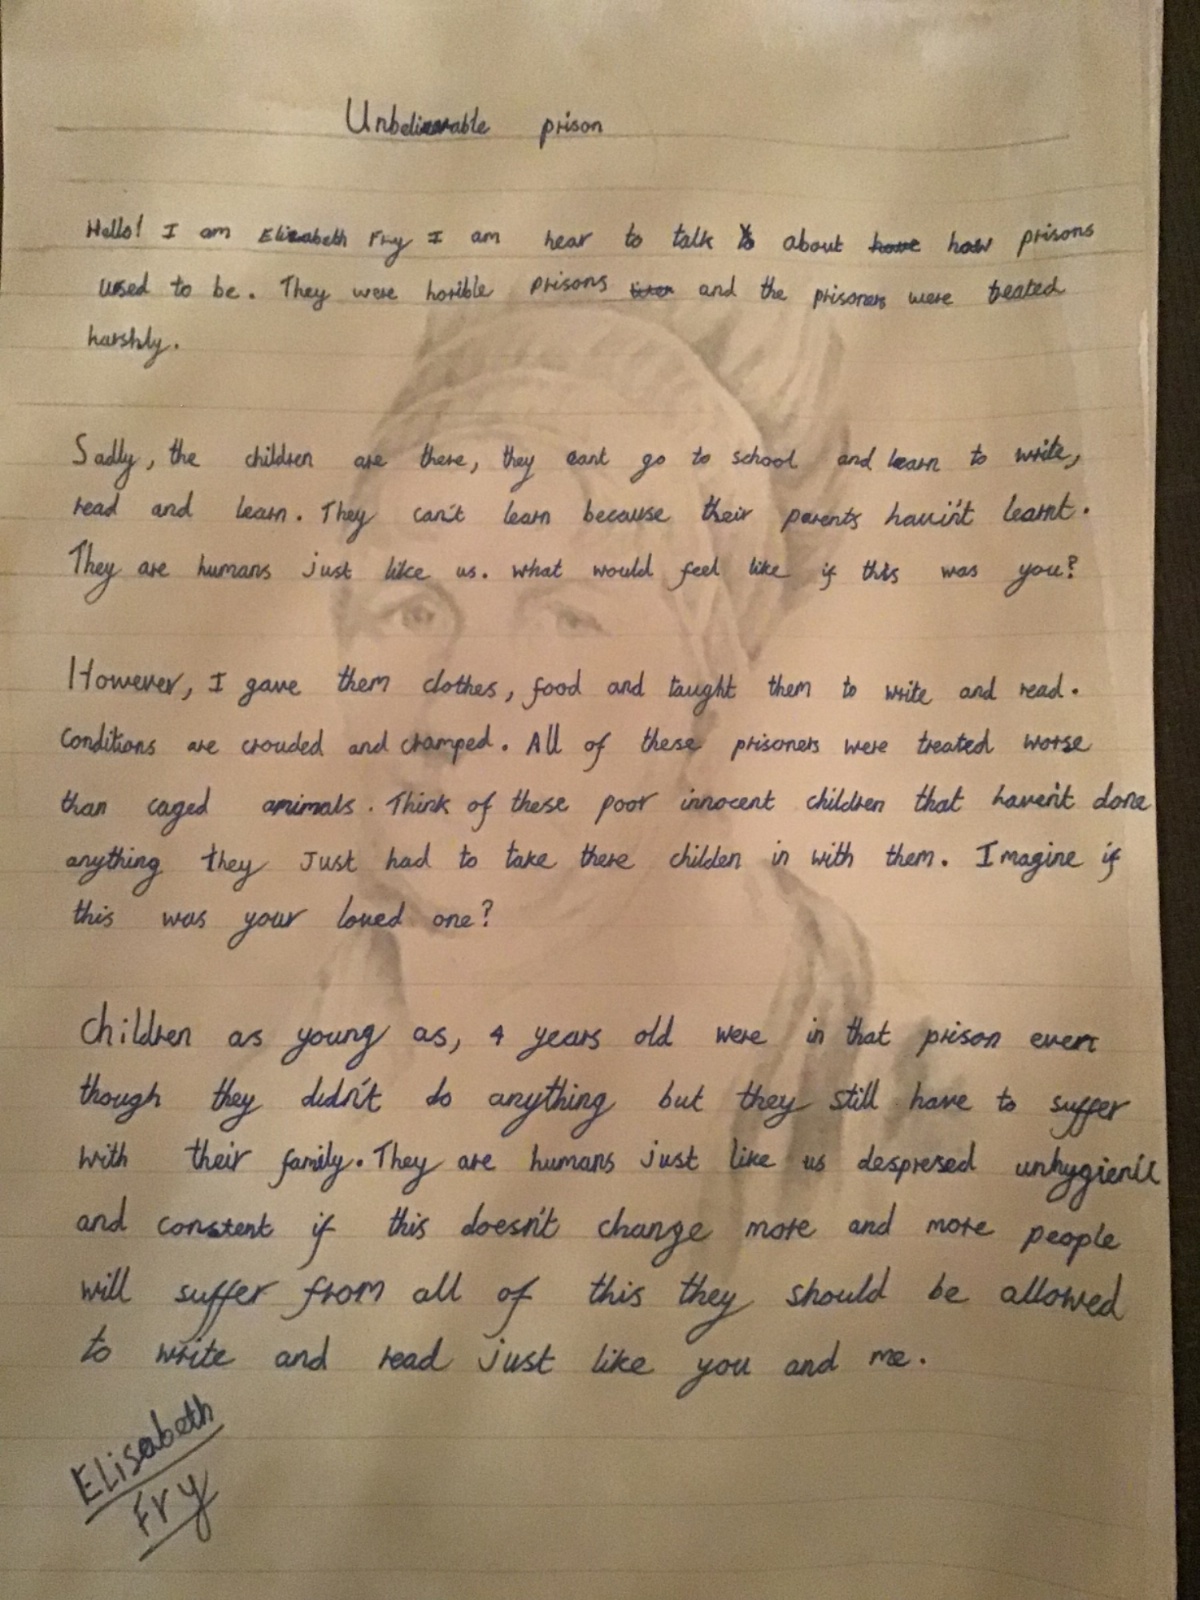 Unbelievable prison
Hello! I am Elizabeth Fry I am hear to talk about how prisons
used to be. They were horible prisons and the prisoners were treated
harshly.
Sadly, the children are there, they cant go to school and learn to write,
read and learn. They can't learn because their parents havin't learnt.
They are humans just like us. what would feel like if this was you?
However, I gave them clothes, food and taught them to write and read.
Conditions are crouded and cramped. All of these prisoners were treated worse
than caged animals. Think of these poor innocent children that haven't done
anything they Just had to take there childen in with them. Imagine if
this was your loved one?
Children as young as, 4 years old were in that prison even
though they didn't do anything but they still have to suffer
with their family. They are humans just like us despresed unhygienic
and constent if this doesn't change more and more people
will suffer from all of this they should be allowed
to write and read just like you and me.
Elisabeth
Fry